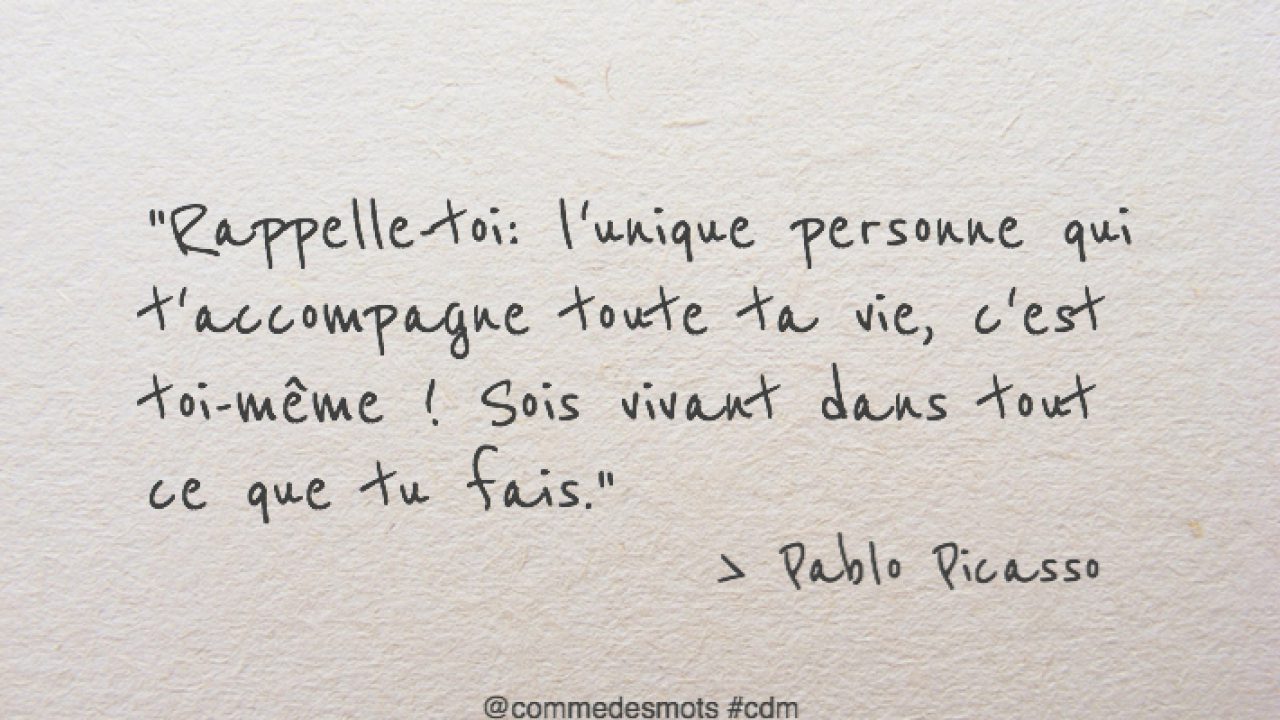 "Rappelle-toi: l'unique personne qui
t'accompagne toute ta vie, c'est
toi-même ! Sois vivant dans tout
ce que tu fais."
> Pablo Picasso
@commedesmots #cdm